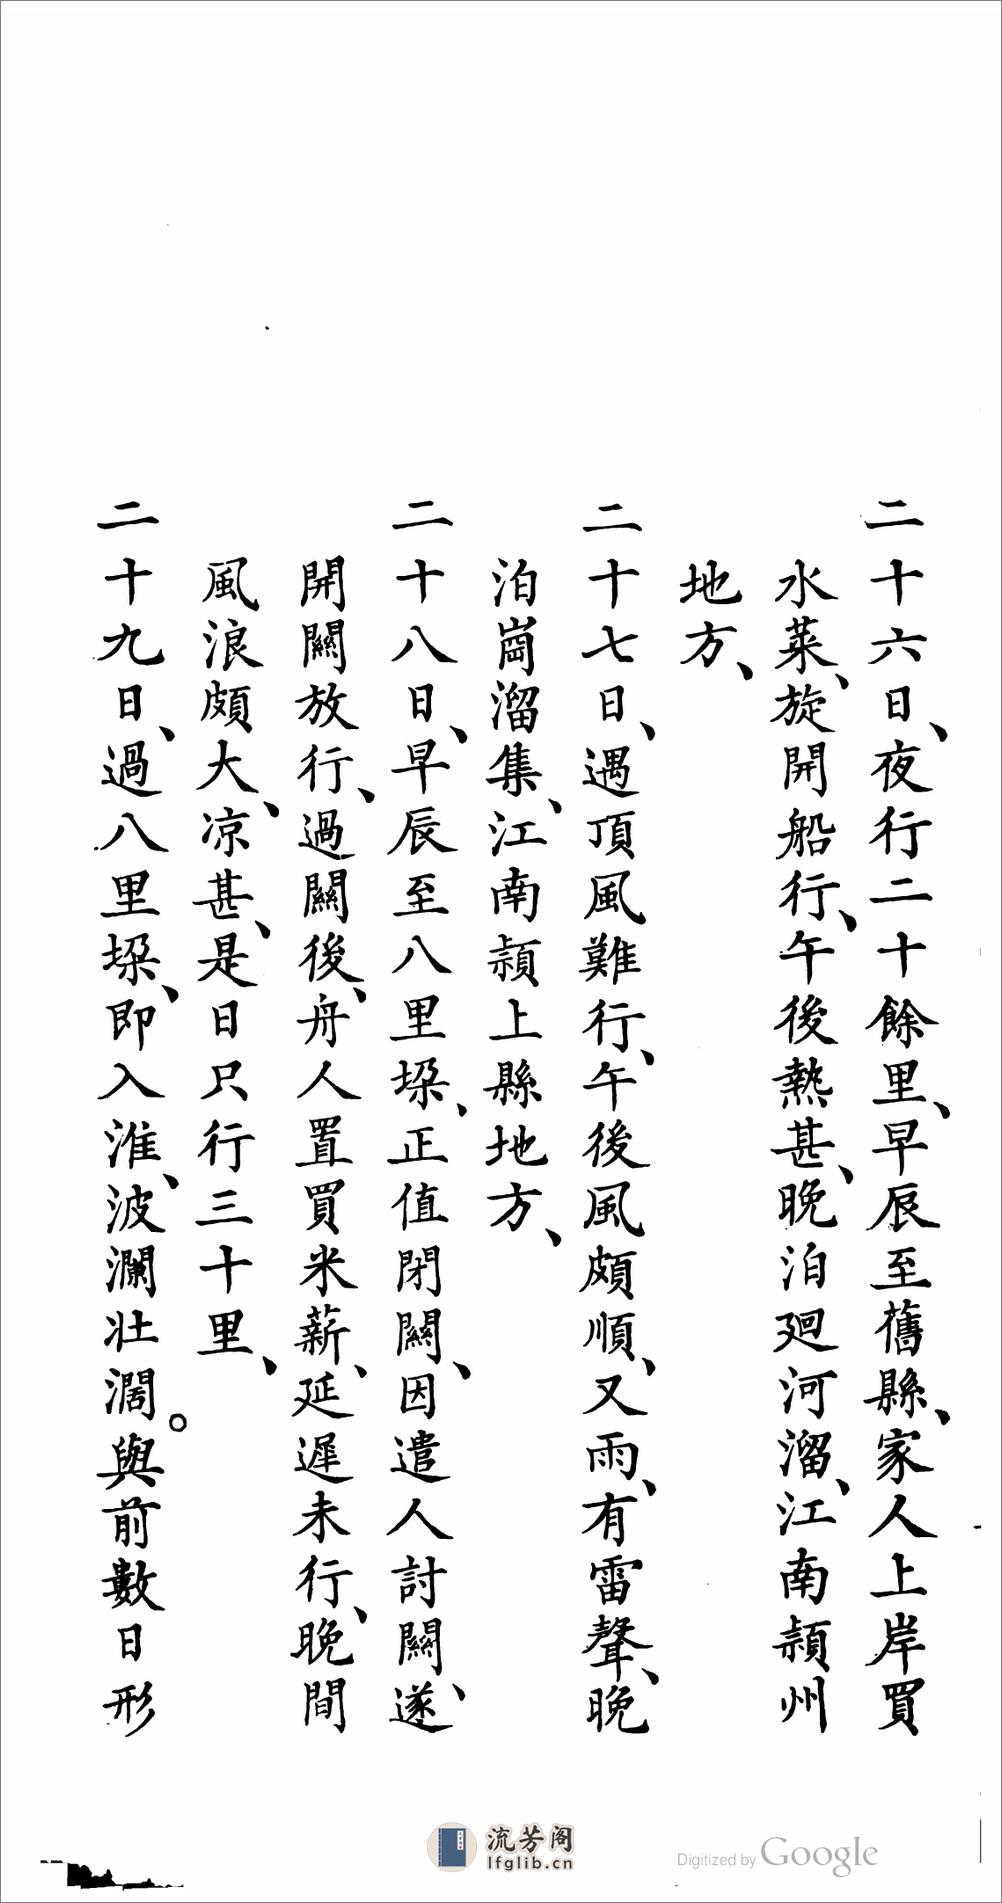 二十六日、夜行二十餘里、早辰至舊縣、家人上岸買
水菜、旋開船行、午後熱甚、晚泊廻河溜、江南潁州
地方、
二十七日、遇頂風難行、午後風頗順、又雨、有雷聲、晚
泊崗溜集、江南潁上縣地方、
二十八日、早辰至八里垛、正值閉關、因遣人討關、遂
開關放行、過關後、舟人置買米薪、延遲未行、晚間
風浪頗大、凉甚、是日只行三十里、
二十九日、過八里垛、即入淮、波瀾壯濶。與前數日形
流芳阁
lfglib.cn
Digitized by Google